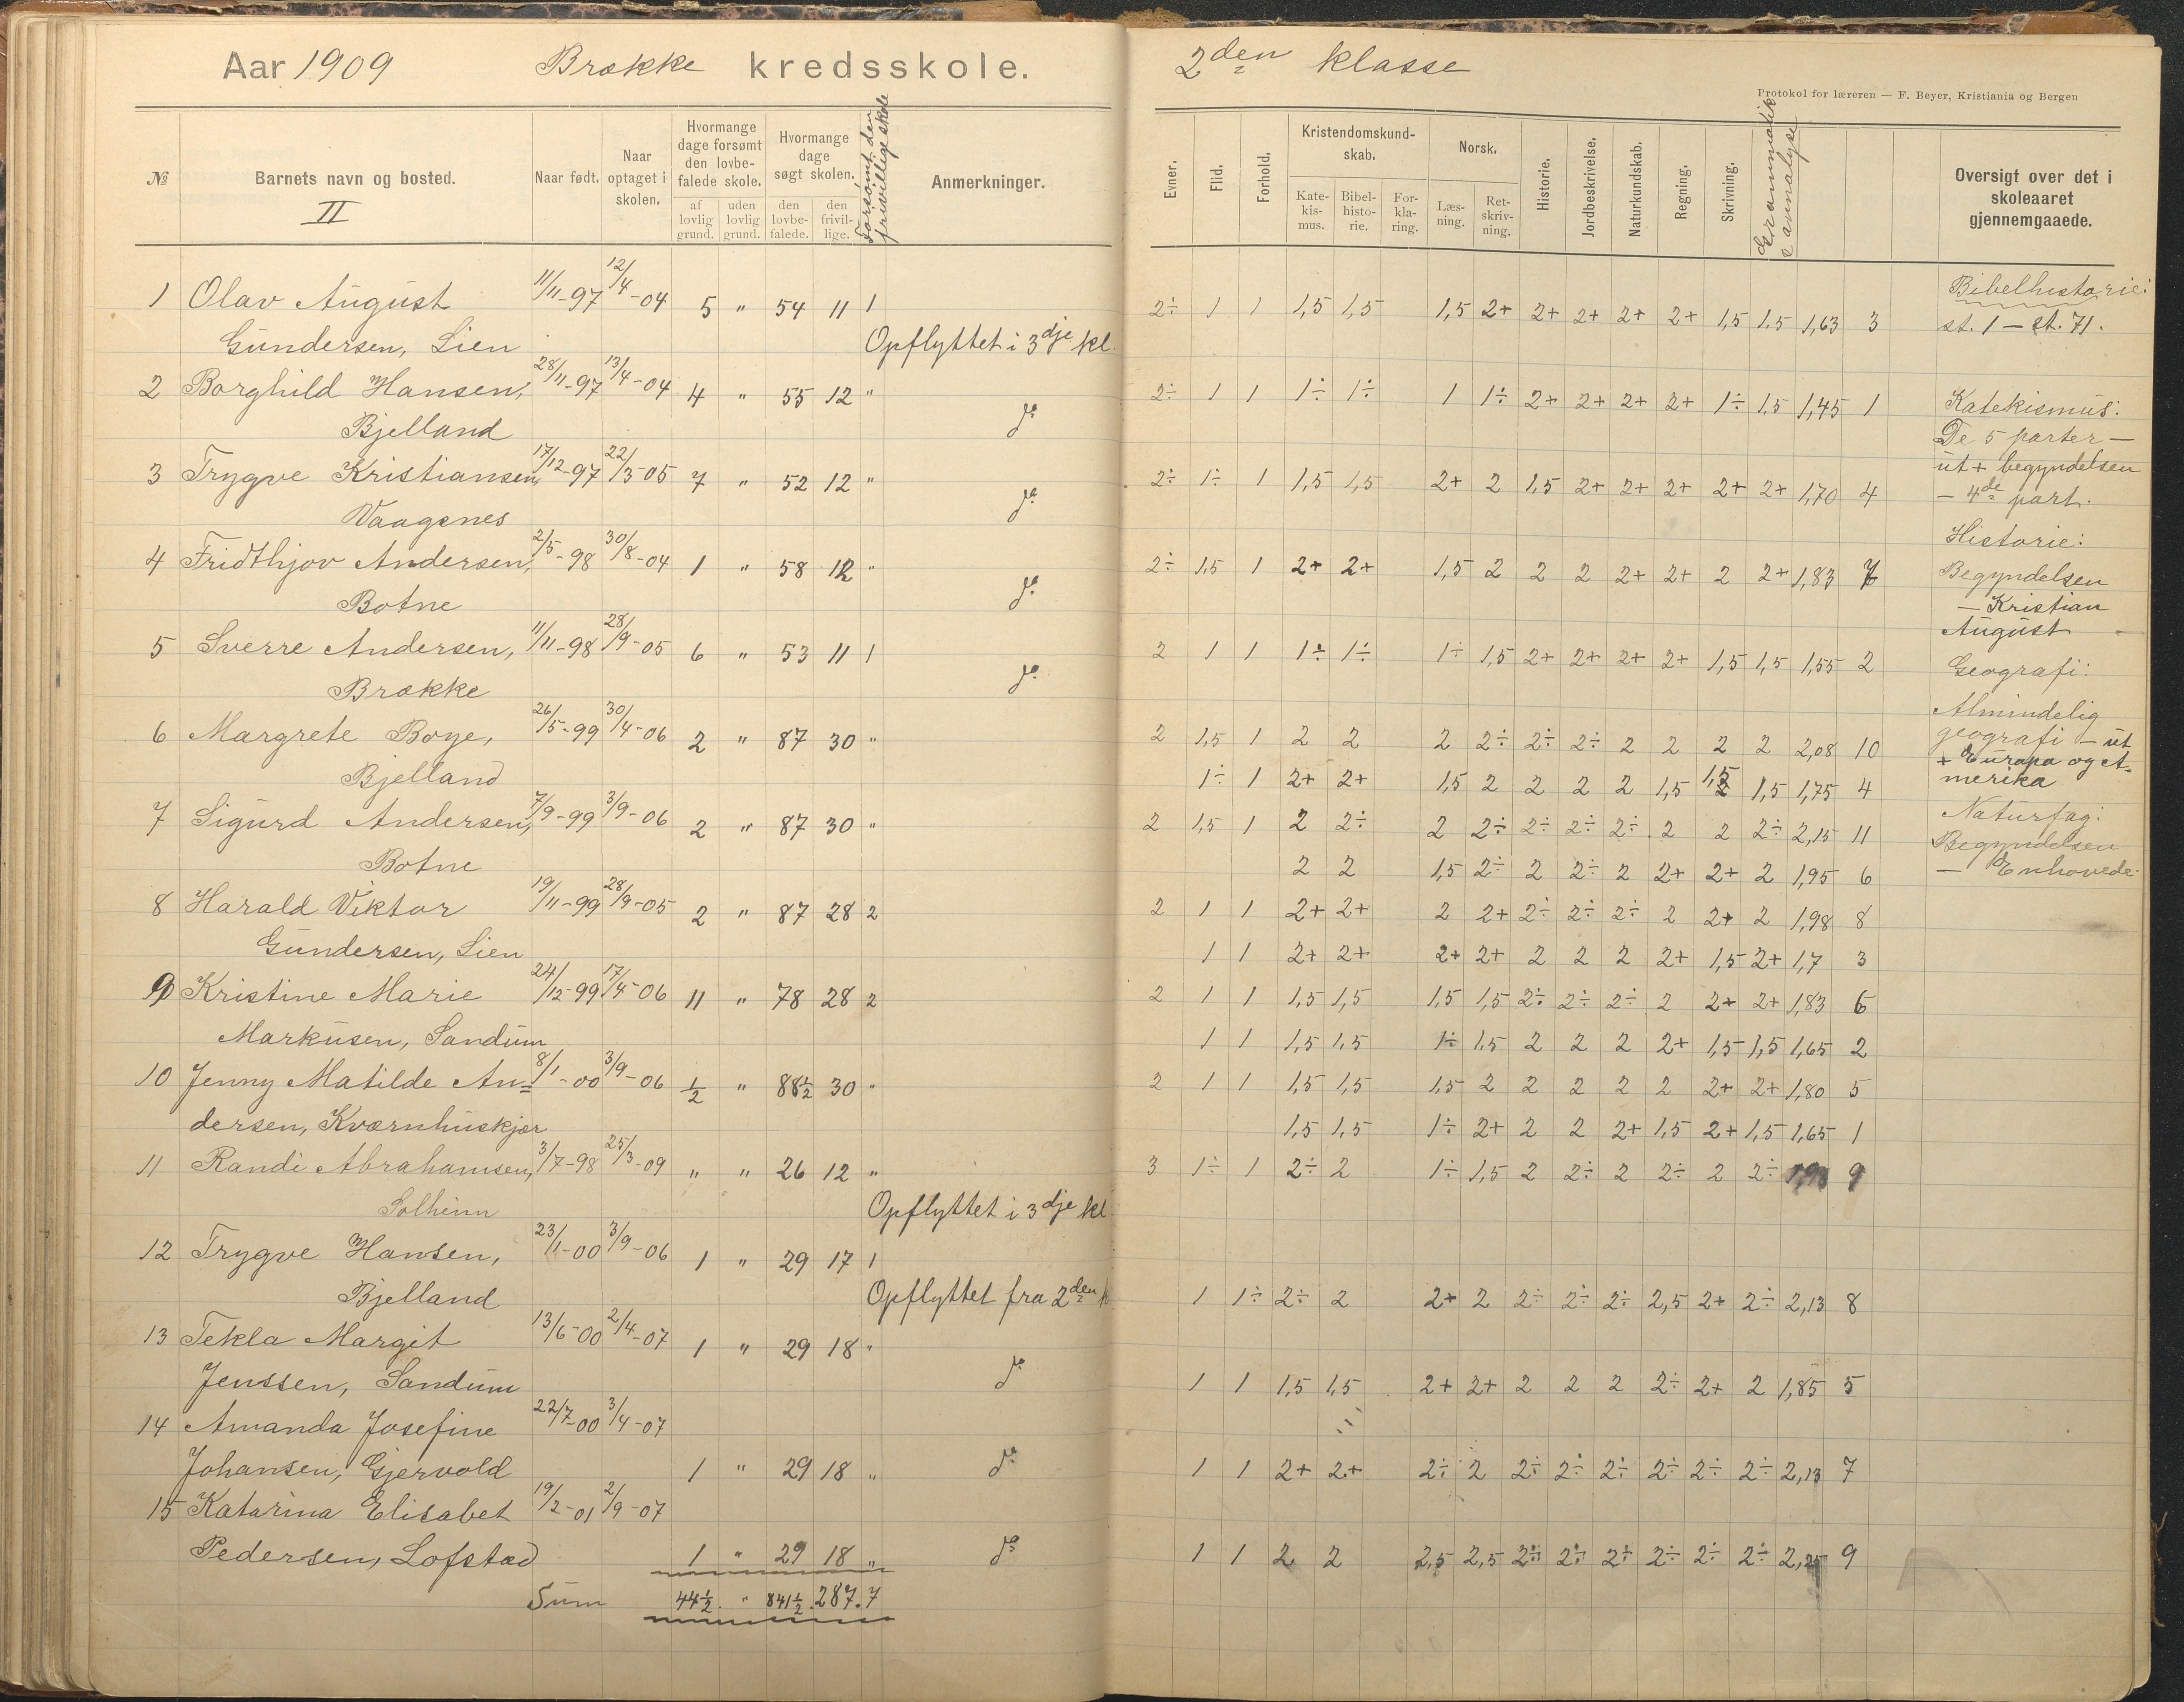 Aar 1909 Brække kredsskole.
№ Barnets navn og bosted. Naar født. Naar optaget i skolen. Hvormange dage forsømt den lovbefalede skole. Hvormange dage søgt skolen. Forsømt den frivillige skole Anmerkninger.
II af lovlig grund. uden lovlig grund. den lovbefalede. den frivillige.
1 Olav August 11/11-97 12/4-04 5 " 54 11 1
Gundersen, Lien Opflyttet i 3dje kl.
2 Borghild Hansen, 28/11-97 13/4-04 4 " 55 12 "
Bjelland do
3 Trygve Kristiansen, 17/12-97 22/3-05 7 " 52 12 "
Vaagsnes do
4 Fridthjov Andersen, 2/5-98 30/8-04 1 " 58 12 "
Botne do
5 Sverre Andersen, 11/11-98 28/9-05 6 " 53 11 1
Brække do
6 Margrete Boye, 26/5-99 30/4-06 2 " 87 30 "
Bjelland
7 Sigurd Andersen, 7/9-99 3/9-06 2 " 87 30 "
Botne
8 Harald Viktor 19/11-99 28/9-05 2 " 87 28 2
Gundersen, Lien
9 Kristine Marie 24/12-99 17/4-06 11 " 78 28 2
Markusen, Sandum
10 Jenny Matilde An= 8/1-00 3/9-06 1/2 " 88 1/2 30 "
dersen, Kværnhuskjær
11 Randi Abrahamsen, 3/7-98 25/3-09 " " 26 12 "
Solheim Opflyttet i 3dje kl
12 Trygve Hansen, 23/11-00 3/9-06 1 " 29 17 1
Bjelland Opflyttet fra 2den
13 Tekla Margit 13/6-00 2/4-07 1 " 29 18 "
Jenssen, Sandum do
14 Amanda Josefine 22/7-00 3/4-07
Johansen, Gjervold 1 " 29 18 " do
15 Katarina Elisabet 19/2-01 2/9-07
Pedersen, Lofstad 1 " 29 18 " do
Sum 44 1/2 " 841 1/2 287. 7
2den klasse
Protokol for læreren — F. Beyer, Kristiania og Bergen
Evner. Flid. Forhold. Kristendomskundskab. Norsk. Historie. Jordbeskrivelse. Naturkundskab. Regning. Skrivning. Grammatik & analyse Oversigt over det i skoleaaret gjennemgaaede.
Katekismus. Bibelhistorie. Forklaring. Læsning. Retskrivning.
2÷ 1 1 1,5 1,5 1,5 2+ 2+ 2+ 2+ 2+ 1,5 1,5 1,63 3
2÷ 1 1 1÷ 1÷ 1 1÷ 2+ 2+ 2+ 2+ 1÷ 1,5 1,45 1
2÷ 1÷ 1 1,5 1,5 2+ 2 1,5 2+ 2+ 2+ 2+ 2+ 1,70 4
2÷ 1,5 1 2+ 2+ 1,5 2 2 2 2+ 2+ 2 2+ 1,83
2 1 1 1÷ 1÷ 1÷ 1,5 2+ 2+ 2+ 2+ 1,5 1,5 1,55 2
2 1,5 1 2 2 2 2÷ 2÷ 2÷ 2 2 2 2 2,08 10
1÷ 1 2+ 2+ 1,5 2 2 2 2 1,5 1,5 1,5 1,75 4
2 1,5 1 2 2÷ 2 2÷ 2÷ 2÷ 2÷ 2 2 2÷ 2,15 11
2 2 1,5 2÷ 2 2÷ 2 2+ 2+ 2 1,95 6
2 1 1 2+ 2+ 2 2+ 2÷ 2÷ 2÷ 2 2+ 2 1,98 8
1 1 2+ 2+ 2+ 2+ 2 2 2 2+ 1,5 2+ 1,7 3
2 1 1 1,5 1,5 1,5 1,5 2÷ 2÷ 2÷ 2 2+ 2+ 1,83 6
1 1 1,5 1,5 1÷ 1,5 2 2 2 2+ 1,5 1,5 1,65 2
2 1 1 1,5 1,5 1,5 2 2 2 2 2 2+ 2+ 1,80 5
1,5 1,5 1÷ 2+ 2 2 2+ 1,5 2+ 1,5 1,65 1
3 1÷ 1 2÷ 2 1÷ 1,5 2 2÷ 2 2÷ 2 2÷ 1,98 9
1 1÷ 2÷ 2 2+ 2 2÷ 2÷ 2÷ 2,5 2+ 2÷ 2,13 8
1 1 1,5 1,5 2+ 2+ 2 2 2 2÷ 2+ 2 1,85 5
1 1 2+ 2+ 2÷ 2 2÷ 2÷ 2÷ 2÷ 2÷ 2÷ 2,13 7
1 1 2 2 2,5 2,5 2÷ 2÷ 2÷ 2÷ 2÷ 2÷ 2,25 9
Bibelhistorie:
st. 1 — st. 71.
Katekismus:
De 5 parter —
ut + begyndelsen
— 4de part.
Historie:
Begyndelsen
— Kristian
August
Geografi:
Almindelig
geografi — ut
+ Europa og A=
merika
Naturfag:
Begyndelsen
— Enhovede